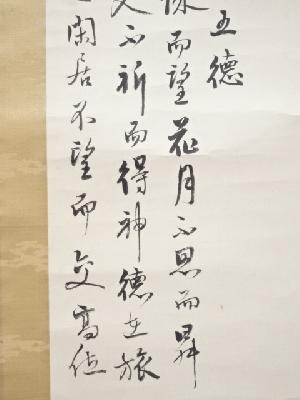 五德
而望花月不思而昇
不祈而得神德在旅
閑居不望而交高位